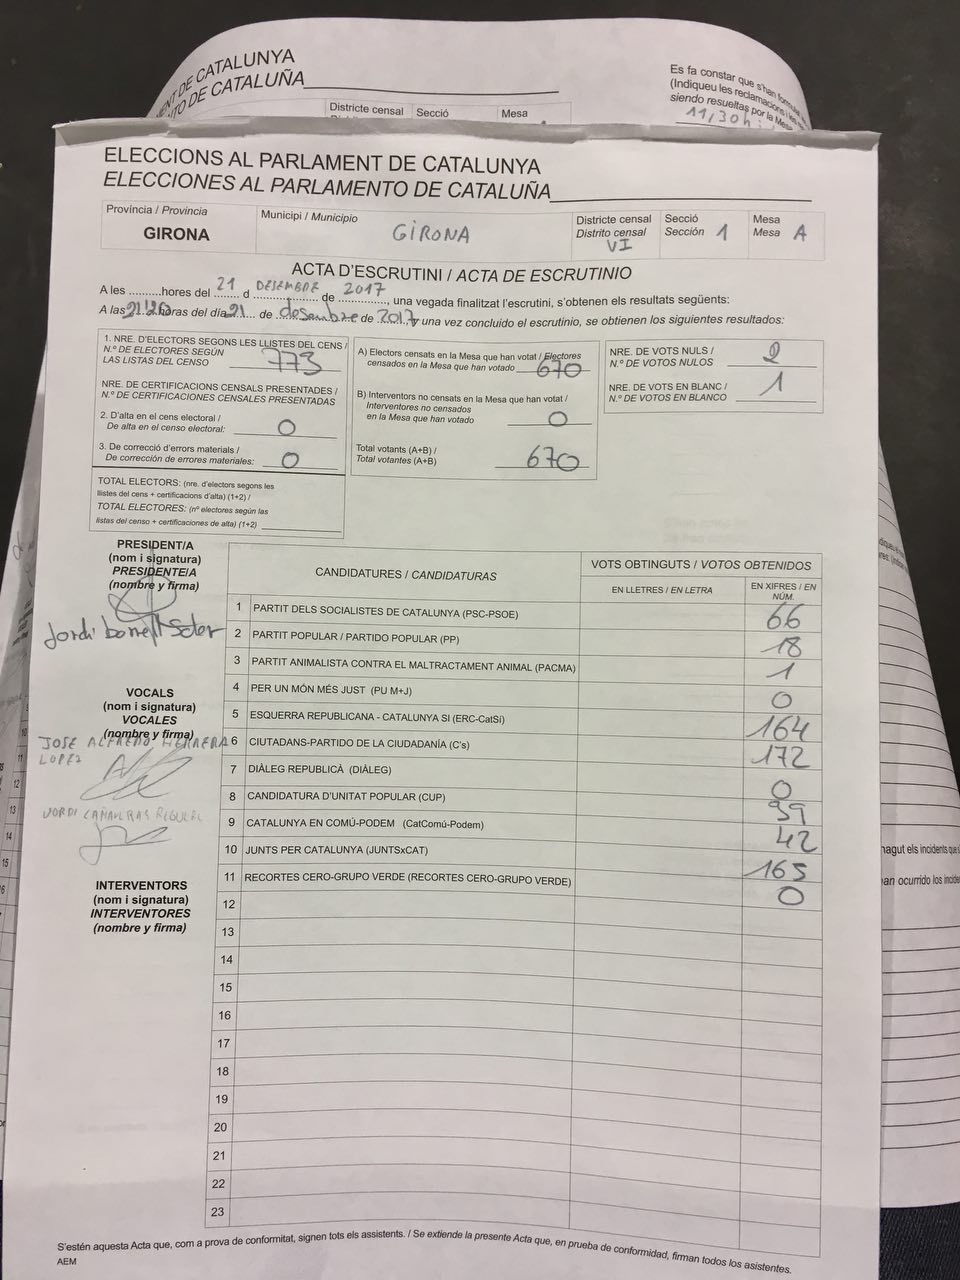 DE CATALUNYA
TO DE CATALUÑA
Es fa constar que s'han
(Indiqueu les
siendo resueltas por la Mesa
11/30h
Districte censal Secció Mesa
ELECCIONS AL PARLAMENT DE CATALUNYA
ELECCIONES AL PARLAMENTO DE CATALUÑA
Província / Provincia Municipi / Municipio Districte censal Secció Mesa
GIRONA GIRONA Distrito censal Sección 1 Mesa A
VI
ACTA D'ESCRUTINI / ACTA DE ESCRUTINIO
A les ..........hores del 21 d DESEMBRE de 2017, una vegada finalitzat l'escrutini, s'obtenen els resultats següents:
A las horas del día 21 de desembre de 2017 y una vez concluido el escrutinio, se obtienen los siguientes resultados:
1. NRE. D'ELECTORS SEGONS LES LLISTES DEL CENS /
N.º DE ELECTORES SEGÚN
LAS LISTAS DEL CENSO 773
NRE. DE CERTIFICACIONS CENSALS PRESENTADES /
N.º DE CERTIFICACIONES CENSALES PRESENTADAS
2. D'alta en el cens electoral /
De alta en el censo electoral: 0
3. De correcció d'errors materials /
De corrección de errores materiales: 0
TOTAL ELECTORS: (nre. d'electors segons les
llistes del cens + certificacions d'alta) (1+2) /
TOTAL ELECTORES: (nº electores según las
listas del censo + certificaciones de alta) (1+2)
A) Electors censats en la Mesa que han votat / Electores
censados en la Mesa que han votado 670
B) Interventors no censats en la Mesa que han votat /
Interventores no censados
en la Mesa que han votado 0
Total votants (A+B) /
Total votantes (A+B) 670
NRE. DE VOTS NULS /
N.º DE VOTOS NULOS 2
NRE. DE VOTS EN BLANC /
N.º DE VOTOS EN BLANCO 1
PRESIDENT/A
(nom i signatura)
PRESIDENTE/A
(nombre y firma)
Jordi Soler
VOCALS
(nom i signatura)
VOCALES
(nombre y firma)
JOSE ALFREDO HERRERA
LOPEZ
JORDI
INTERVENTORS
(nom i signatura)
INTERVENTORES
(nombre y firma)
CANDIDATURES / CANDIDATURAS VOTS OBTINGUTS / VOTOS OBTENIDOS
EN LLETRES / EN LETRA EN XIFRES / EN
NÚM.
1 PARTIT DELS SOCIALISTES DE CATALUNYA (PSC-PSOE) 66
2 PARTIT POPULAR / PARTIDO POPULAR (PP) 18
3 PARTIT ANIMALISTA CONTRA EL MALTRACTAMENT ANIMAL (PACMA) 1
4 PER UN MÓN MÉS JUST (PU M+J) 0
5 ESQUERRA REPUBLICANA - CATALUNYA SI (ERC-CatSí) 164
6 CIUTADANS-PARTIDO DE LA CIUDADANÍA (C's) 172
7 DIÀLEG REPUBLICÀ (DIÀLEG) 0
8 CANDIDATURA D'UNITAT POPULAR (CUP) 39
9 CATALUNYA EN COMÚ-PODEM (CatComú-Podem) 42
10 JUNTS PER CATALUNYA (JUNTSxCAT) 165
11 RECORTES CERO-GRUPO VERDE (RECORTES CERO-GRUPO VERDE) 0
12
13
14
15
16
17
18
19
20
21
22
23
S'estén aquesta Acta que, com a prova de conformitat, signen tots els assistents. / Se extiende la presente Acta que, en prueba de conformidad, firman todos los asistentes.
AEM
hagut els incidents que
han ocurrido los